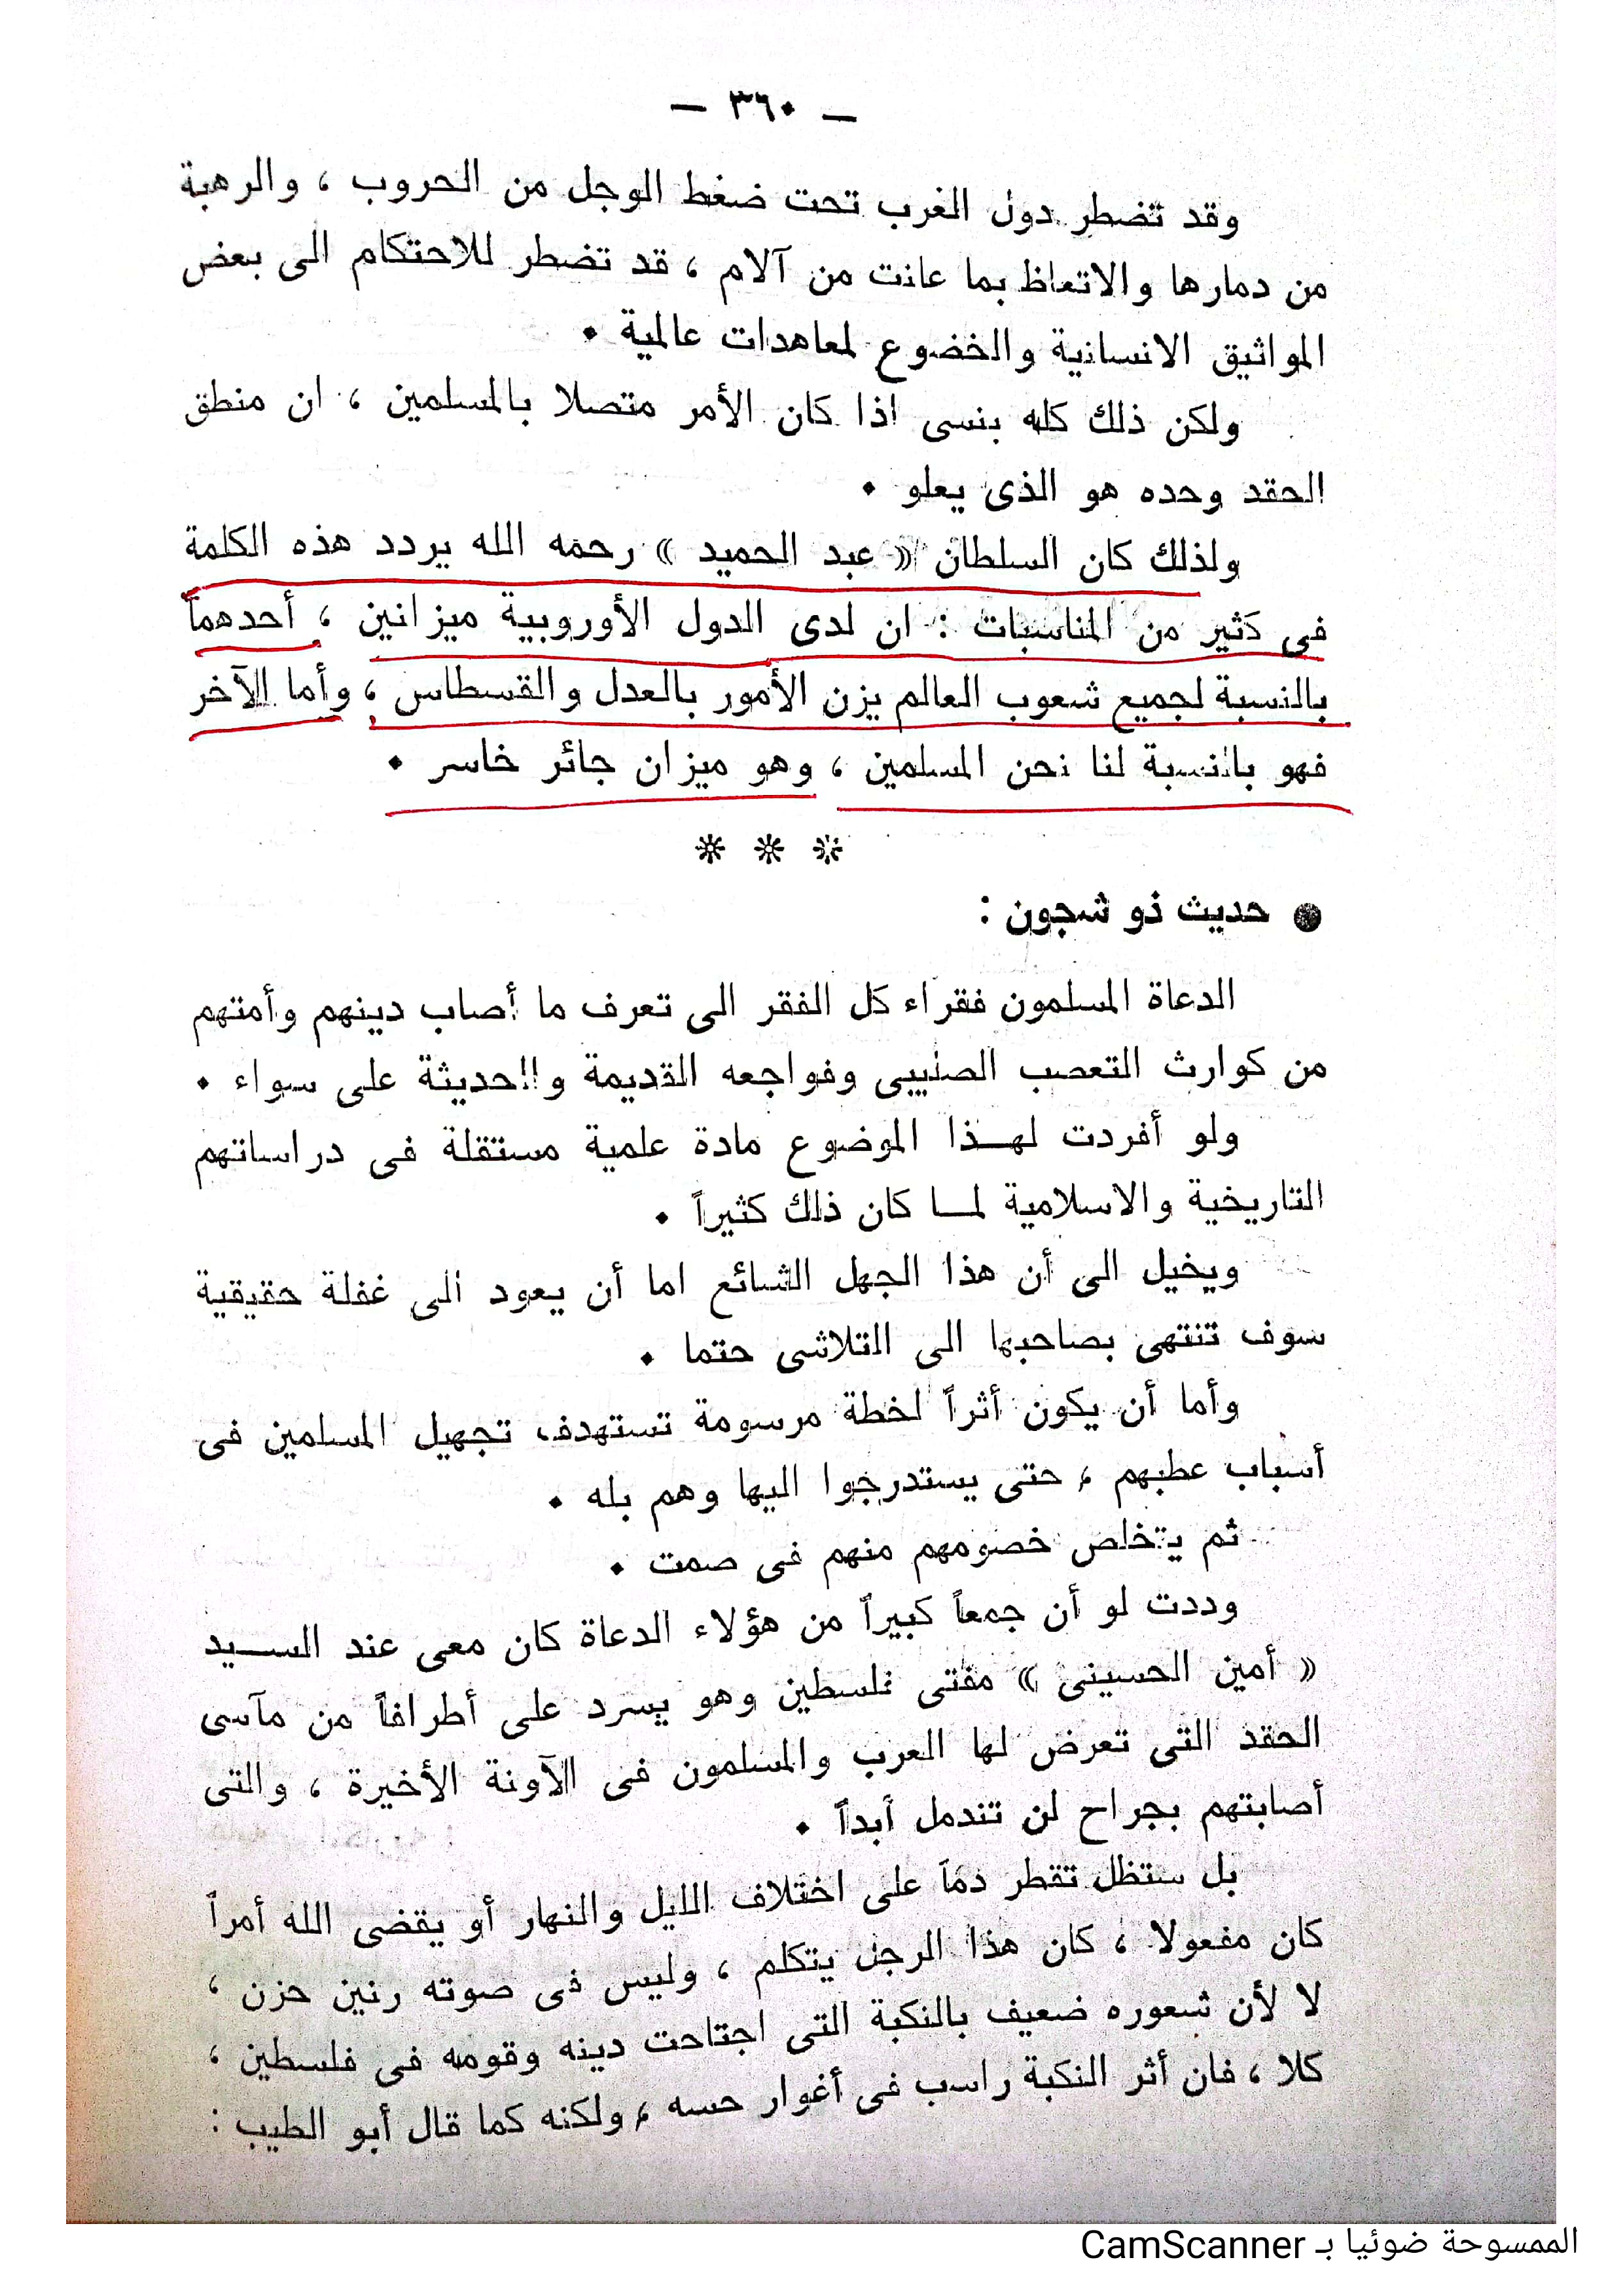 — ٣٦٠ —
وقد تضطر دول الغرب تحت ضغط الوجل من الحروب ، والرهبة
من دمارها والاتعاظ بما عانت من آلام ، قد تضطر للاحتكام الى بعض
المواثيق الانسانية والخضوع لمعاهدات عالمية .
ولكن ذلك كله ينسى اذا كان الأمر متصلا بالمسلمين ، ان منطق
الحقد وحده هو الذى يعلو .
ولذلك كان السلطان « عبد الحميد » رحمه الله يردد هذه الكلمة
فى كثير من المناسبات : ان لدى الدول الأوروبية ميزانين ، أحدهما
بالنسبة لجميع شعوب العالم يزن الأمور بالعدل والقسطاس ، وأما الآخر
فهو بالنسبة لنا نحن المسلمين ، وهو ميزان جائر خاسر .
* * *
● حديث ذو شجون :
الدعاة المسلمون فقراء كل الفقر الى تعرف ما أصاب دينهم وأمتهم
من كوارث التعصب الصليبى وفواجعه القديمة والحديثة على سواء .
ولو أفردت لهـذا الموضوع مادة علمية مستقلة فى دراساتهم
التاريخية والاسلامية لمـا كان ذلك كثيراً .
ويخيل الى أن هذا الجهل الشائع اما أن يعود الى غفلة حقيقية
سوف تنتهى بصاحبها الى التلاشى حتما .
وأما أن يكون أثراً لخطة مرسومة تستهدف تجهيل المسلمين فى
أسباب عطبهم ، حتى يستدرجوا اليها وهم بله .
ثم يتخلص خصومهم منهم فى صمت .
وددت لو أن جمعاً كبيراً من هؤلاء الدعاة كان معى عند السـيد
« أمين الحسينى » مفتى فلسطين وهو يسرد على أطرافاً من مآسى
الحقد التى تعرض لها العرب والمسلمون فى الآونة الأخيرة ، والتى
أصابتهم بجراح لن تندمل أبداً .
بل ستظل تقطر دماً على اختلاف الليل والنهار أو يقضى الله أمراً
كان مفعولا ، كان هذا الرجل يتكلم ، وليس فى صوته رنين حزن ،
لا لأن شعوره ضعيف بالنكبة التى اجتاحت دينه وقومه فى فلسطين ،
كلا ، فان أثر النكبة راسب فى أغوار حسه ، ولكنه كما قال أبو الطيب :
الممسوحة ضوئيا بـ CamScanner